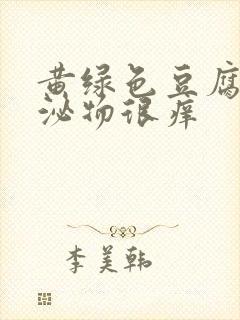 黄绿色豆腐
泌物很痒
李美韩